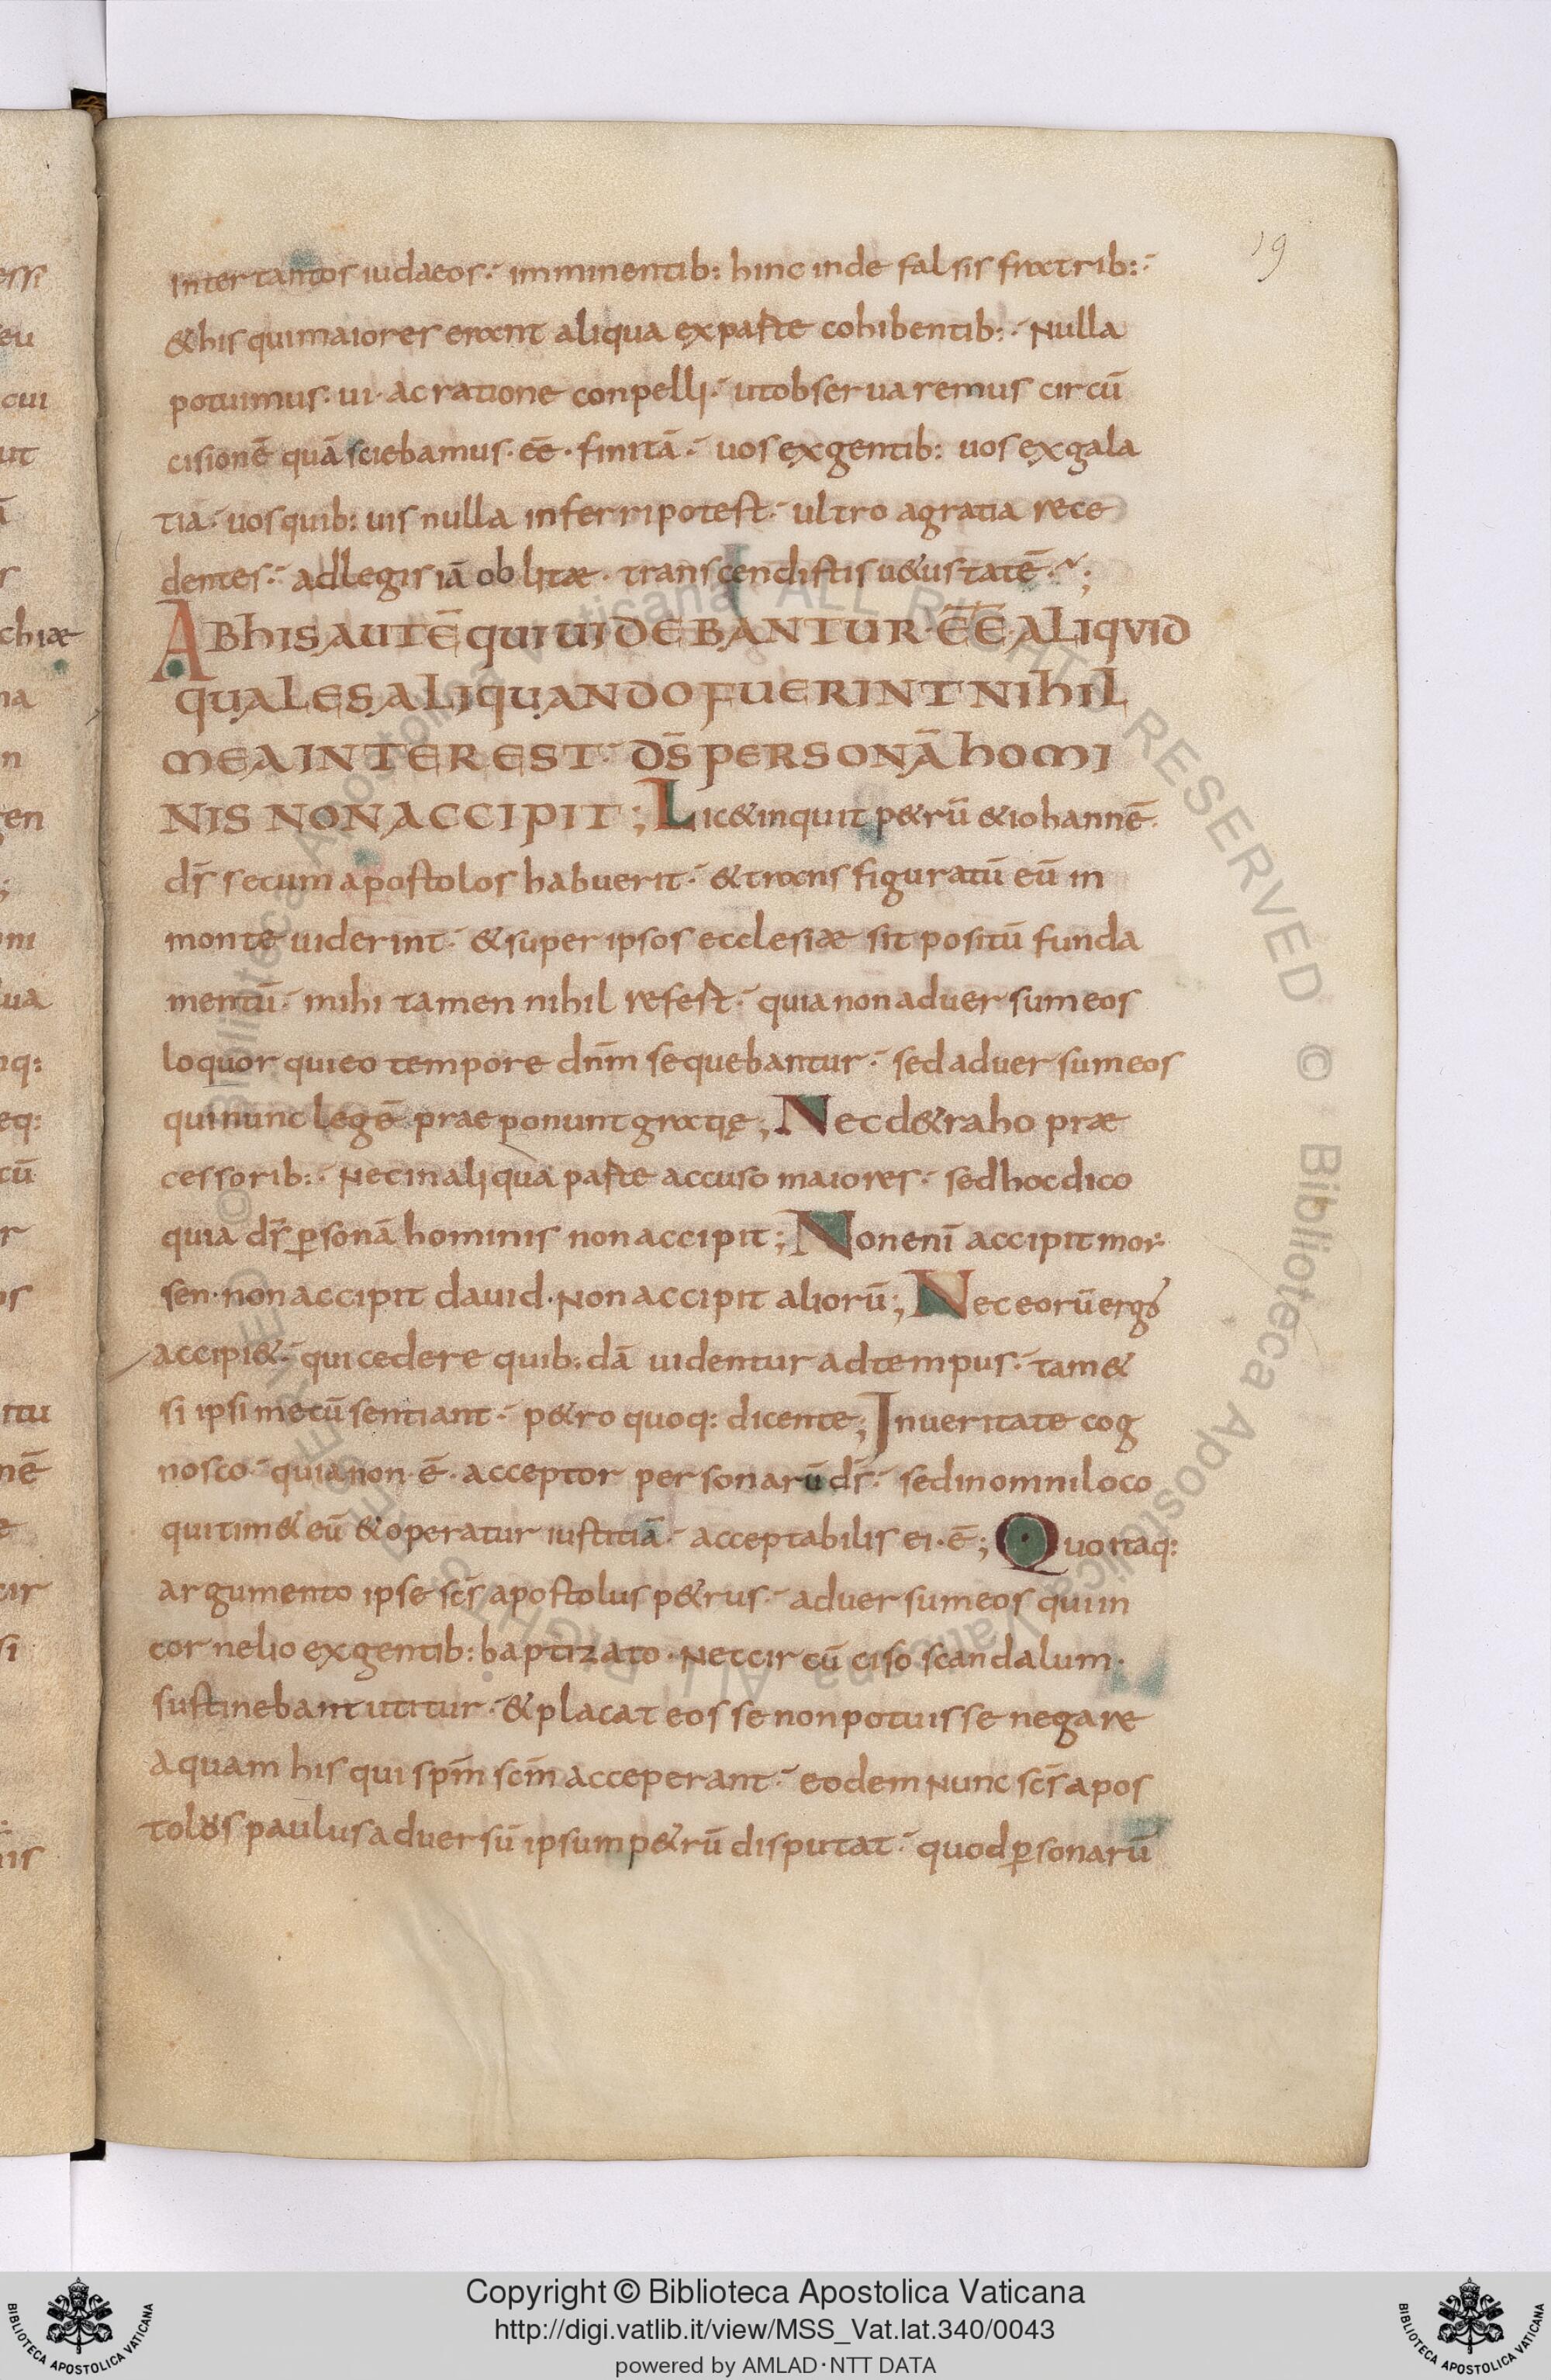 19
inter tantos iudaeos imminentib: hinc inde falsis fratrib:
& his qui maiores erant aliqua ex parte cohibentib: Nulla
potuimus ui ac ratione conpelli ut obseruaremus circū
cisionē quā sciebamus ēē finitā uos ex gentib: uos ex gala
tia uos quib: uis nulla inferri potest ultro a gratia rece
dentes ad legis iā oblitae transcendistis u&ustatē ;
AB his autē qui uidebantur ēē aliqvid
quales aliquando fuerint nihil
mea interest d̄s personā homi
nis non accipit; Lic& inquit p&rū & iohannē
d̄s secum apostolos habuerit & transfiguratū eū in
monte uiderint & super ipsos ecclesiae sit positū funda
mentū mihi tamen nihil refert quia non aduersum eos
loquor qui eo tempore dn̄m sequebantur sed aduersum eos
qui nunc legē praeponunt gratię; Nec d&raho prae
cessorib: Nec in aliqua parte accuso maiores sed hoc dico
quia d̄s p̱sonā hominis non accipit; Non enī accipit mor
sen. non accipit dauid. Non accipit aliorū; Nec eorū ergo
accipi& qui cedere quib:dā uidentur ad tempus tam&
si ipsi mecū sentiant p&ro quoq: dicente; In ueritate cog
nosco quia non ē acceptor personarū d̄s sed in omni loco
qui tim& eū & operatur iustitiā acceptabilis ei ē; Quo itaq:
argumento ipse sc̄s apostolus p&rus aduersum eos qui in
cornelio ex gentib: baptizato Nec circū ciso scandalum
sustinebant utitur & placat eos se non potuisse negare
aquam his qui sp̄m sc̄m acceperant eodem Nunc sc̄s apos
tolus paulus aduersū ipsum p&rū disputat quod p̱sonarū
Copyright © Biblioteca Apostolica Vaticana
http://digi.vatlib.it/view/MSS_Vat.lat.340/0043
powered by AMLAD·NTT DATA
BIBLIOTECA APOSTOLICA VATICANA
BIBLIOTECA APOSTOLICA VATICANA